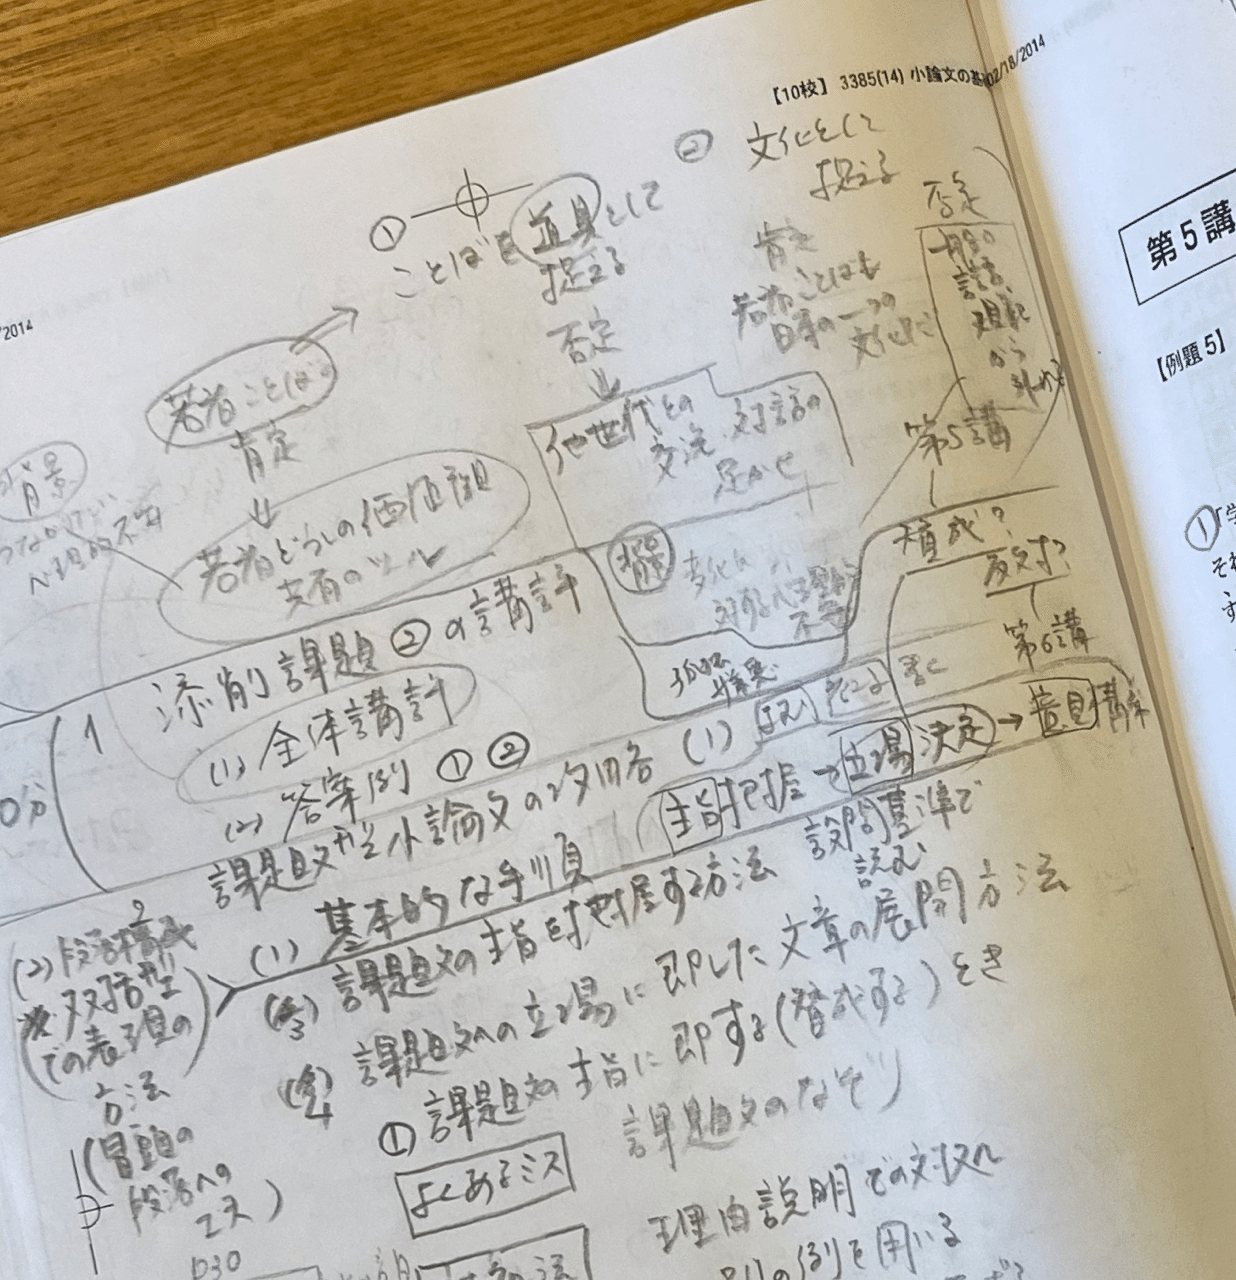 【10校】 3385(14) 小論文の基 02/18/2014
/2014
① ことばを道具として
捉える
否定
他世代との
交流、対話の
足かせ
② 文化として
捉える
肯定
若者ことばも
日本の一つの
文化
否定
若者ことば
肯定
若者どうしの価値観
共有のツール
背景
心理的不安
背景
変化に
対する心理的
不安
第5講
賛成?
反対?
第6講
1 添削課題②の講評
(1) 全体講評
(2) 答案例 ① ②
0分
課題文型小論文の内容 (1) よむ 考える 書く
主旨把握→立場決定→意見構築
(1) 基本的な手順
設問基準で
読む
(2) 段落構成
双括型
での表現の
方法
(冒頭の
段落への
工夫)
(3) 課題文の主旨を把握する方法
(4) 課題文への立場に即した文章の展開方法
① 課題文の主旨に即する(賛成する)とき
よくあるミス
課題文のなぞり
理由説明での対拠
別の例を用いる
第5講
【例題5】
①「学
それ